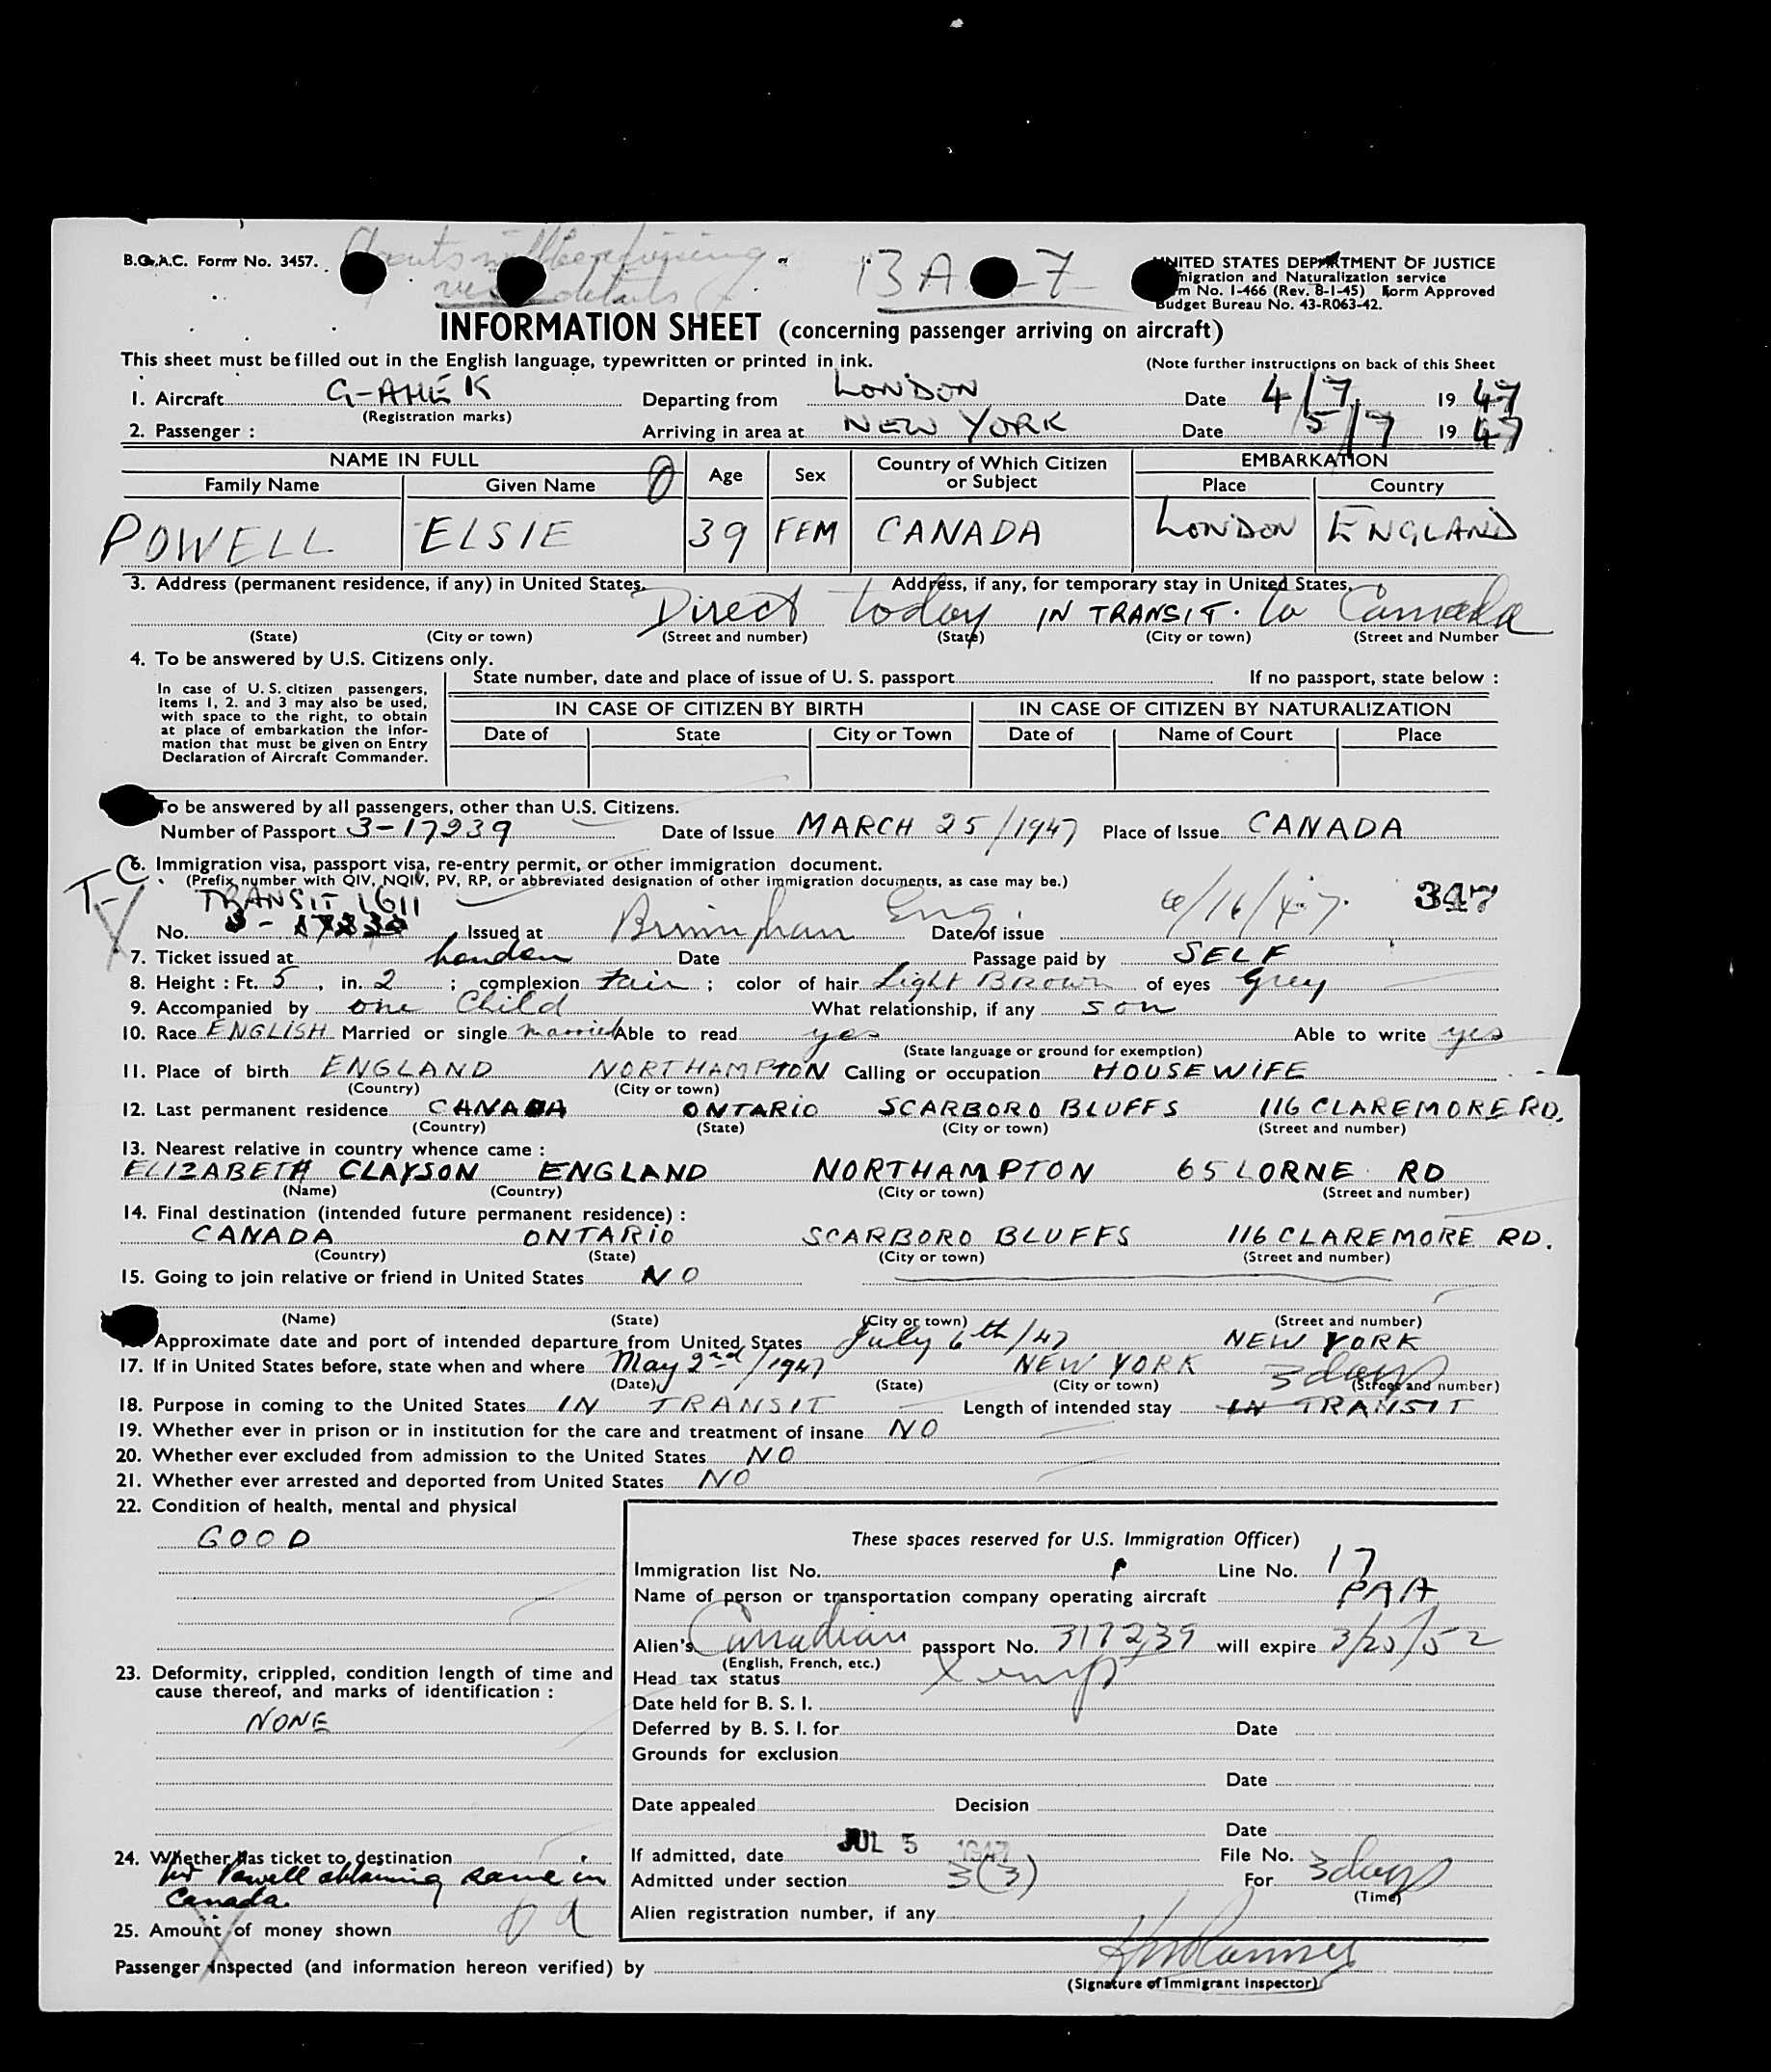 B.O.A.C. Form No. 3457.
13A 7
UNITED STATES DEPARTMENT OF JUSTICE
migration and Naturalization service
m No. I-466 (Rev. 8-1-45) Form Approved
Budget Bureau No. 43-R063-42.
INFORMATION SHEET (concerning passenger arriving on aircraft)
This sheet must be filled out in the English language, typewritten or printed in ink. (Note further instructions on back of this Sheet
1. Aircraft G-AHEK Departing from LONDON Date 4/7 19 47
(Registration marks)
2. Passenger : Arriving in area at NEW YORK Date 5/7 19 47
NAME IN FULL Age Sex Country of Which Citizen or Subject EMBARKATION
Family Name Given Name Place Country
POWELL ELSIE 39 FEM CANADA LONDON ENGLAND
3. Address (permanent residence, if any) in United States. Address, if any, for temporary stay in United States.
Direct today IN TRANSIT. to Canada
(State) (City or town) (Street and number) (State) (City or town) (Street and Number
4. To be answered by U.S. Citizens only.
State number, date and place of issue of U. S. passport If no passport, state below :
In case of U. S. citizen passengers,
items 1, 2. and 3 may also be used,
with space to the right, to obtain
at place of embarkation the infor-
mation that must be given on Entry
Declaration of Aircraft Commander.
IN CASE OF CITIZEN BY BIRTH IN CASE OF CITIZEN BY NATURALIZATION
Date of State City or Town Date of Name of Court Place
To be answered by all passengers, other than U.S. Citizens.
Number of Passport 3-17239 Date of Issue MARCH 25/1947 Place of Issue CANADA
6. Immigration visa, passport visa, re-entry permit, or other immigration document.
(Prefix number with QIV, NQIV, PV, RP, or abbreviated designation of other immigration documents, as case may be.)
TRANSIT 1611
No. Issued at Birmingham Eng. Date of issue 4/16/47. 347
7. Ticket issued at London Date Passage paid by SELF
8. Height : Ft. 5 , in. 2 ; complexion Fair ; color of hair Light Brown of eyes Grey
9. Accompanied by one Child What relationship, if any son
10. Race ENGLISH Married or single married Able to read yes Able to write yes
(State language or ground for exemption)
11. Place of birth ENGLAND NORTHAMPTON Calling or occupation HOUSEWIFE
(Country) (City or town)
12. Last permanent residence CANADA ONTARIO SCARBORO BLUFFS 116 CLAREMORE RD.
(Country) (State) (City or town) (Street and number)
13. Nearest relative in country whence came :
ELIZABETH CLAYSON ENGLAND NORTHAMPTON 65 LORNE RD
(Name) (Country) (City or town) (Street and number)
14. Final destination (intended future permanent residence) :
CANADA ONTARIO SCARBORO BLUFFS 116 CLAREMORE RD.
(Country) (State) (City or town) (Street and number)
15. Going to join relative or friend in United States NO
(Name) (State) (City or town) (Street and number)
Approximate date and port of intended departure from United States July 6th/47 NEW YORK
17. If in United States before, state when and where May 2nd/1947 NEW YORK 3 days
(Date) (State) (City or town) (Street and number)
18. Purpose in coming to the United States IN TRANSIT Length of intended stay IN TRANSIT
19. Whether ever in prison or in institution for the care and treatment of insane NO
20. Whether ever excluded from admission to the United States NO
21. Whether ever arrested and deported from United States NO
22. Condition of health, mental and physical
GOOD
These spaces reserved for U.S. Immigration Officer)
Immigration list No. Line No. 17
Name of person or transportation company operating aircraft PAA
Alien's Canadian passport No. 317239 will expire 3/25/52
(English, French, etc.)
23. Deformity, crippled, condition length of time and
cause thereof, and marks of identification :
NONE
Head tax status
Date held for B. S. I.
Deferred by B. S. I. for Date
Grounds for exclusion
Date
Date appealed Decision
Date
24. Whether has ticket to destination
Mr Powell obtaining same in
Canada.
If admitted, date JUL 5 1947 File No.
Admitted under section 3(3) For 3 days
(Time)
Alien registration number, if any
25. Amount of money shown
Passenger inspected (and information hereon verified) by
(Signature of Immigrant Inspector)